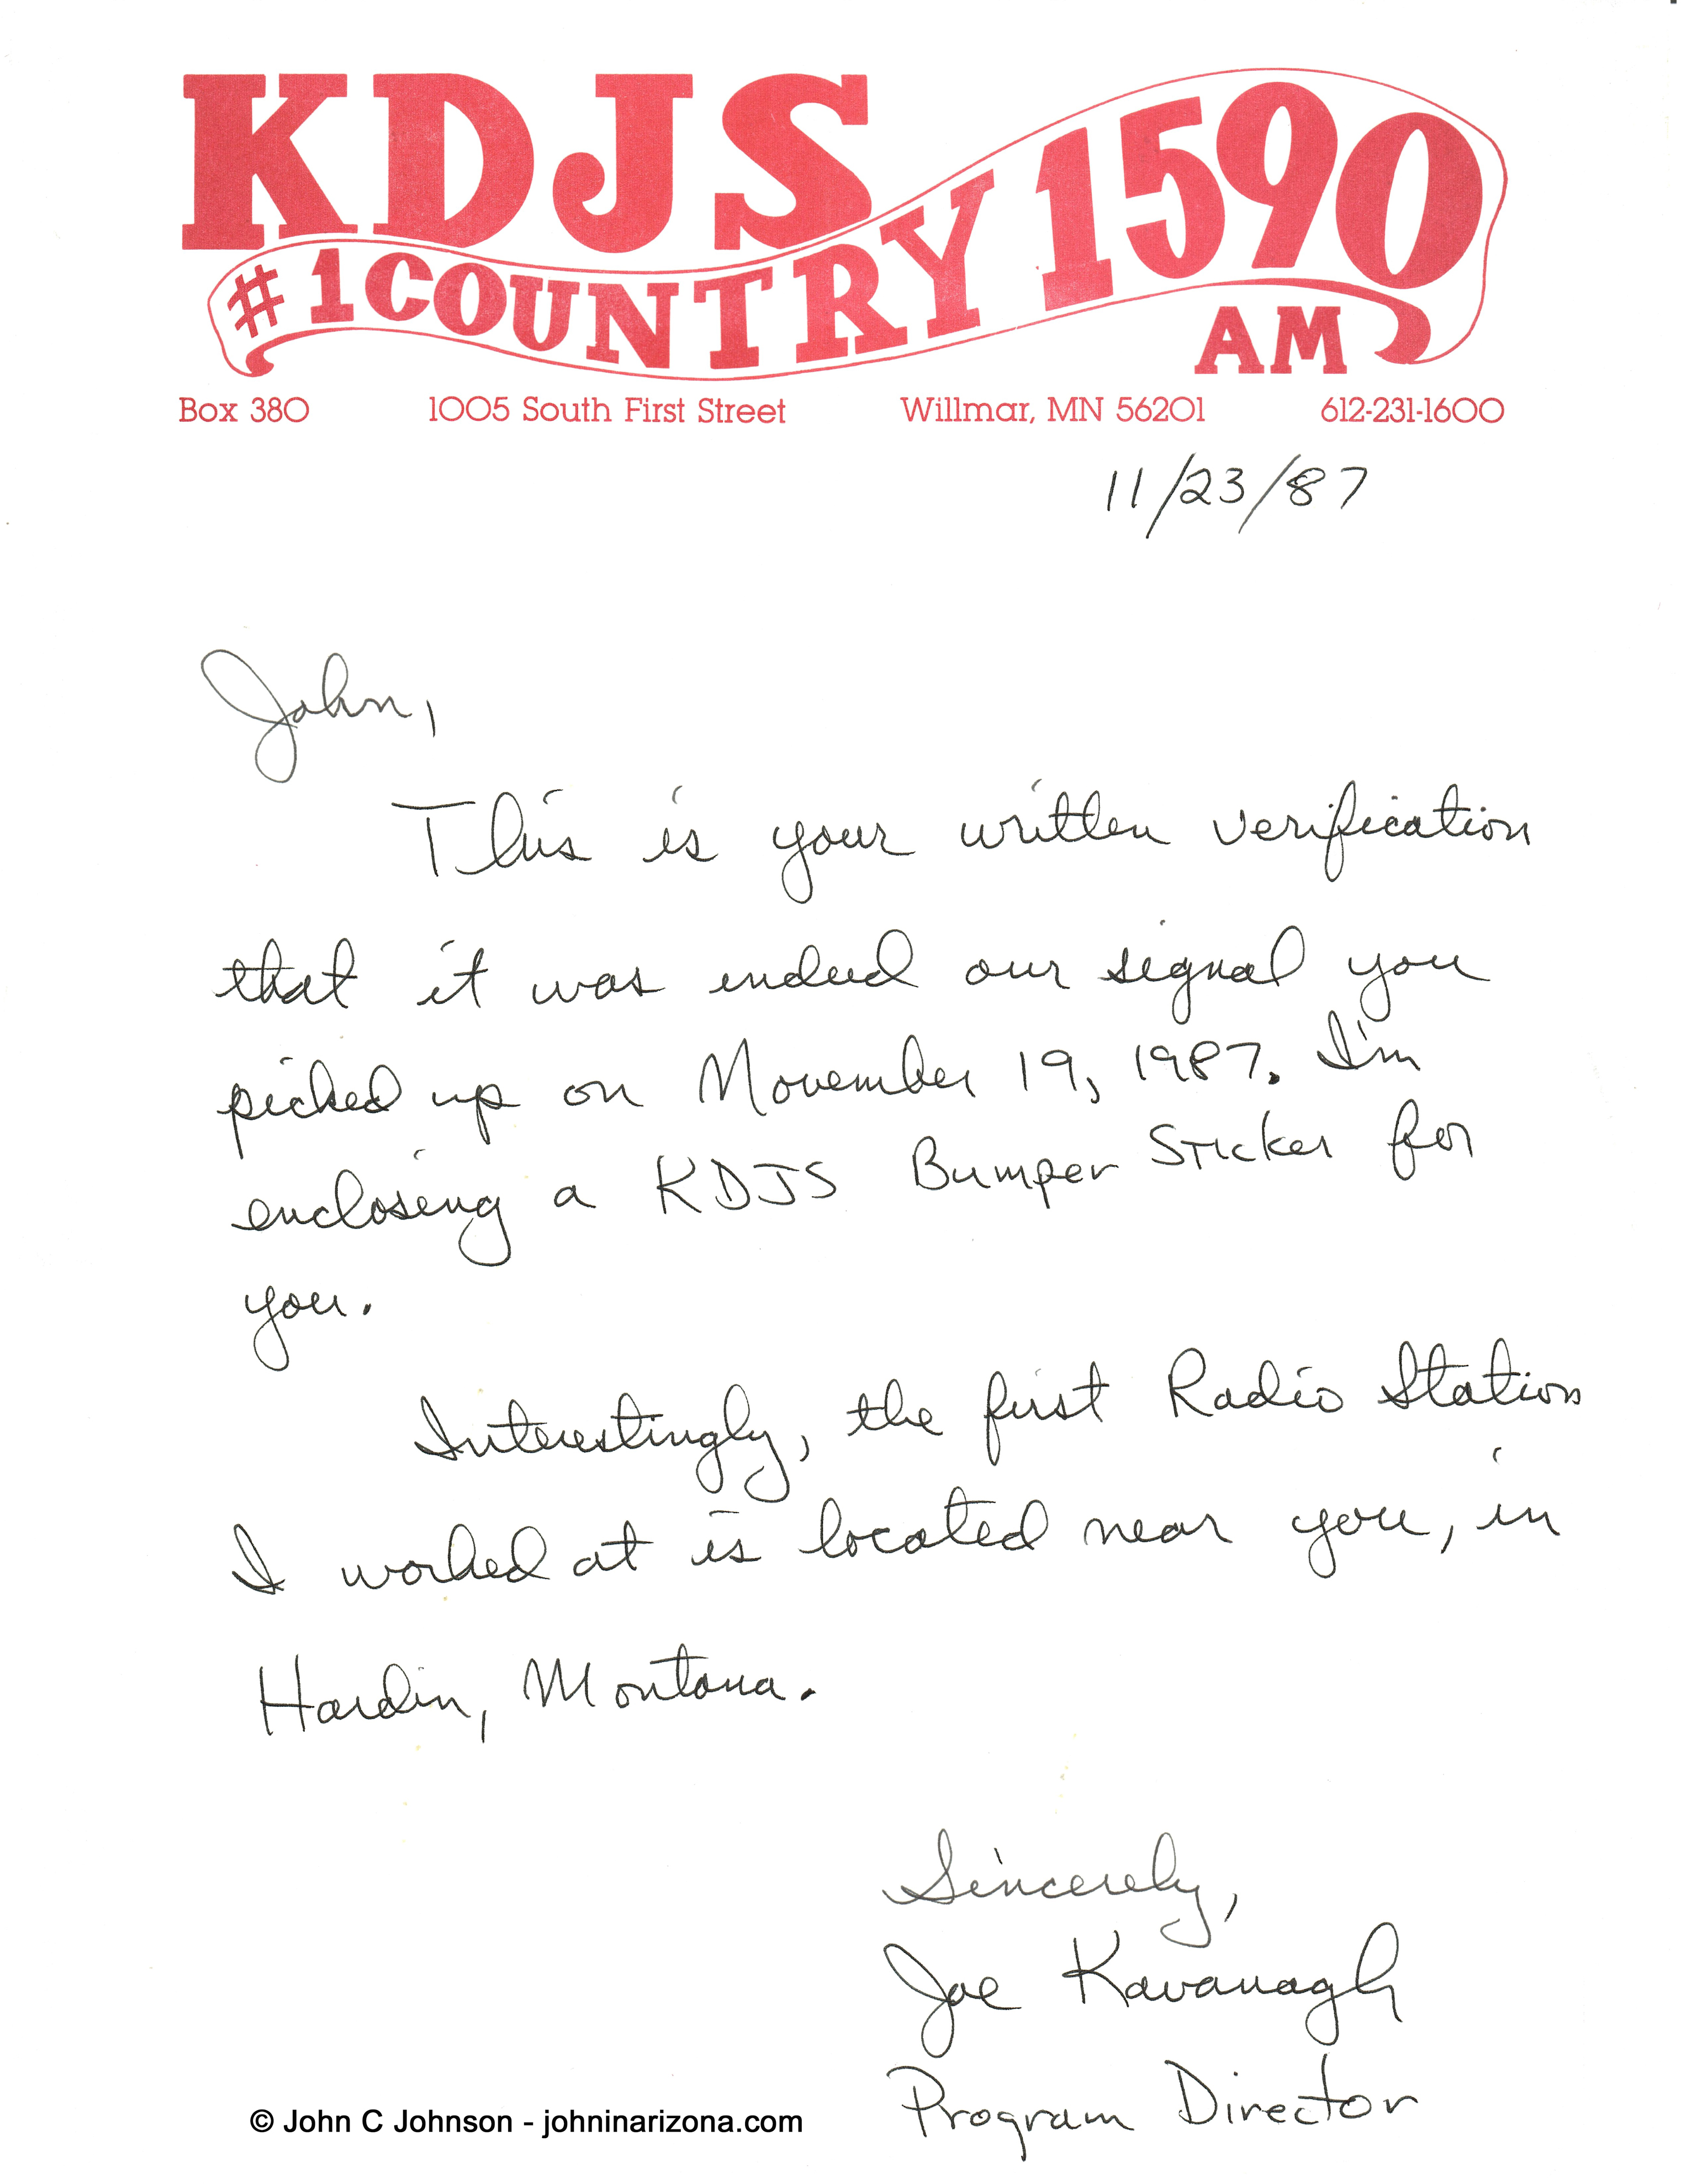 KDJS
#1 COUNTRY 1590
AM
Box 380 1005 South First Street Willmar, MN 56201 612-231-1600
11/23/87
John,
This is your written verification
that it was indeed our signal you
picked up on November 19, 1987. I'm
enclosing a KDJS Bumper Sticker for
you.
Interestingly, the first Radio Station
I worked at is located near you, in
Hardin, Montana.
Sincerely,
Joe Kavanagh
Program Director
© John C Johnson - johninarizona.com